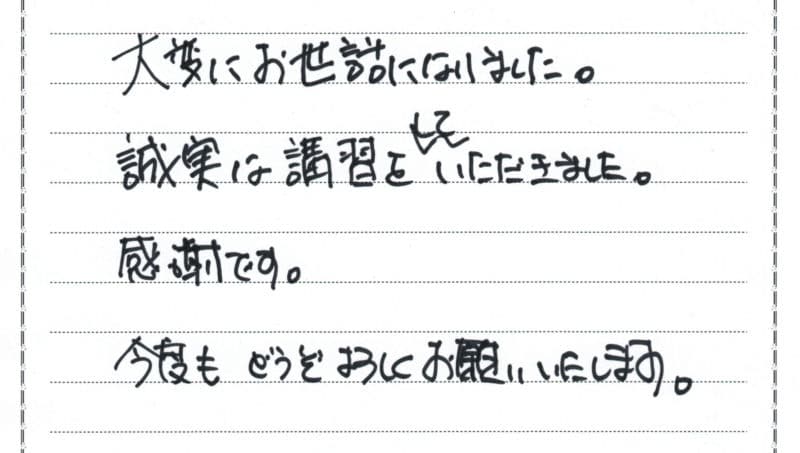 大変にお世話になりました。
誠実は講習をしていただきました。
感謝です。
今度もどうぞよろしくお願いいたします。